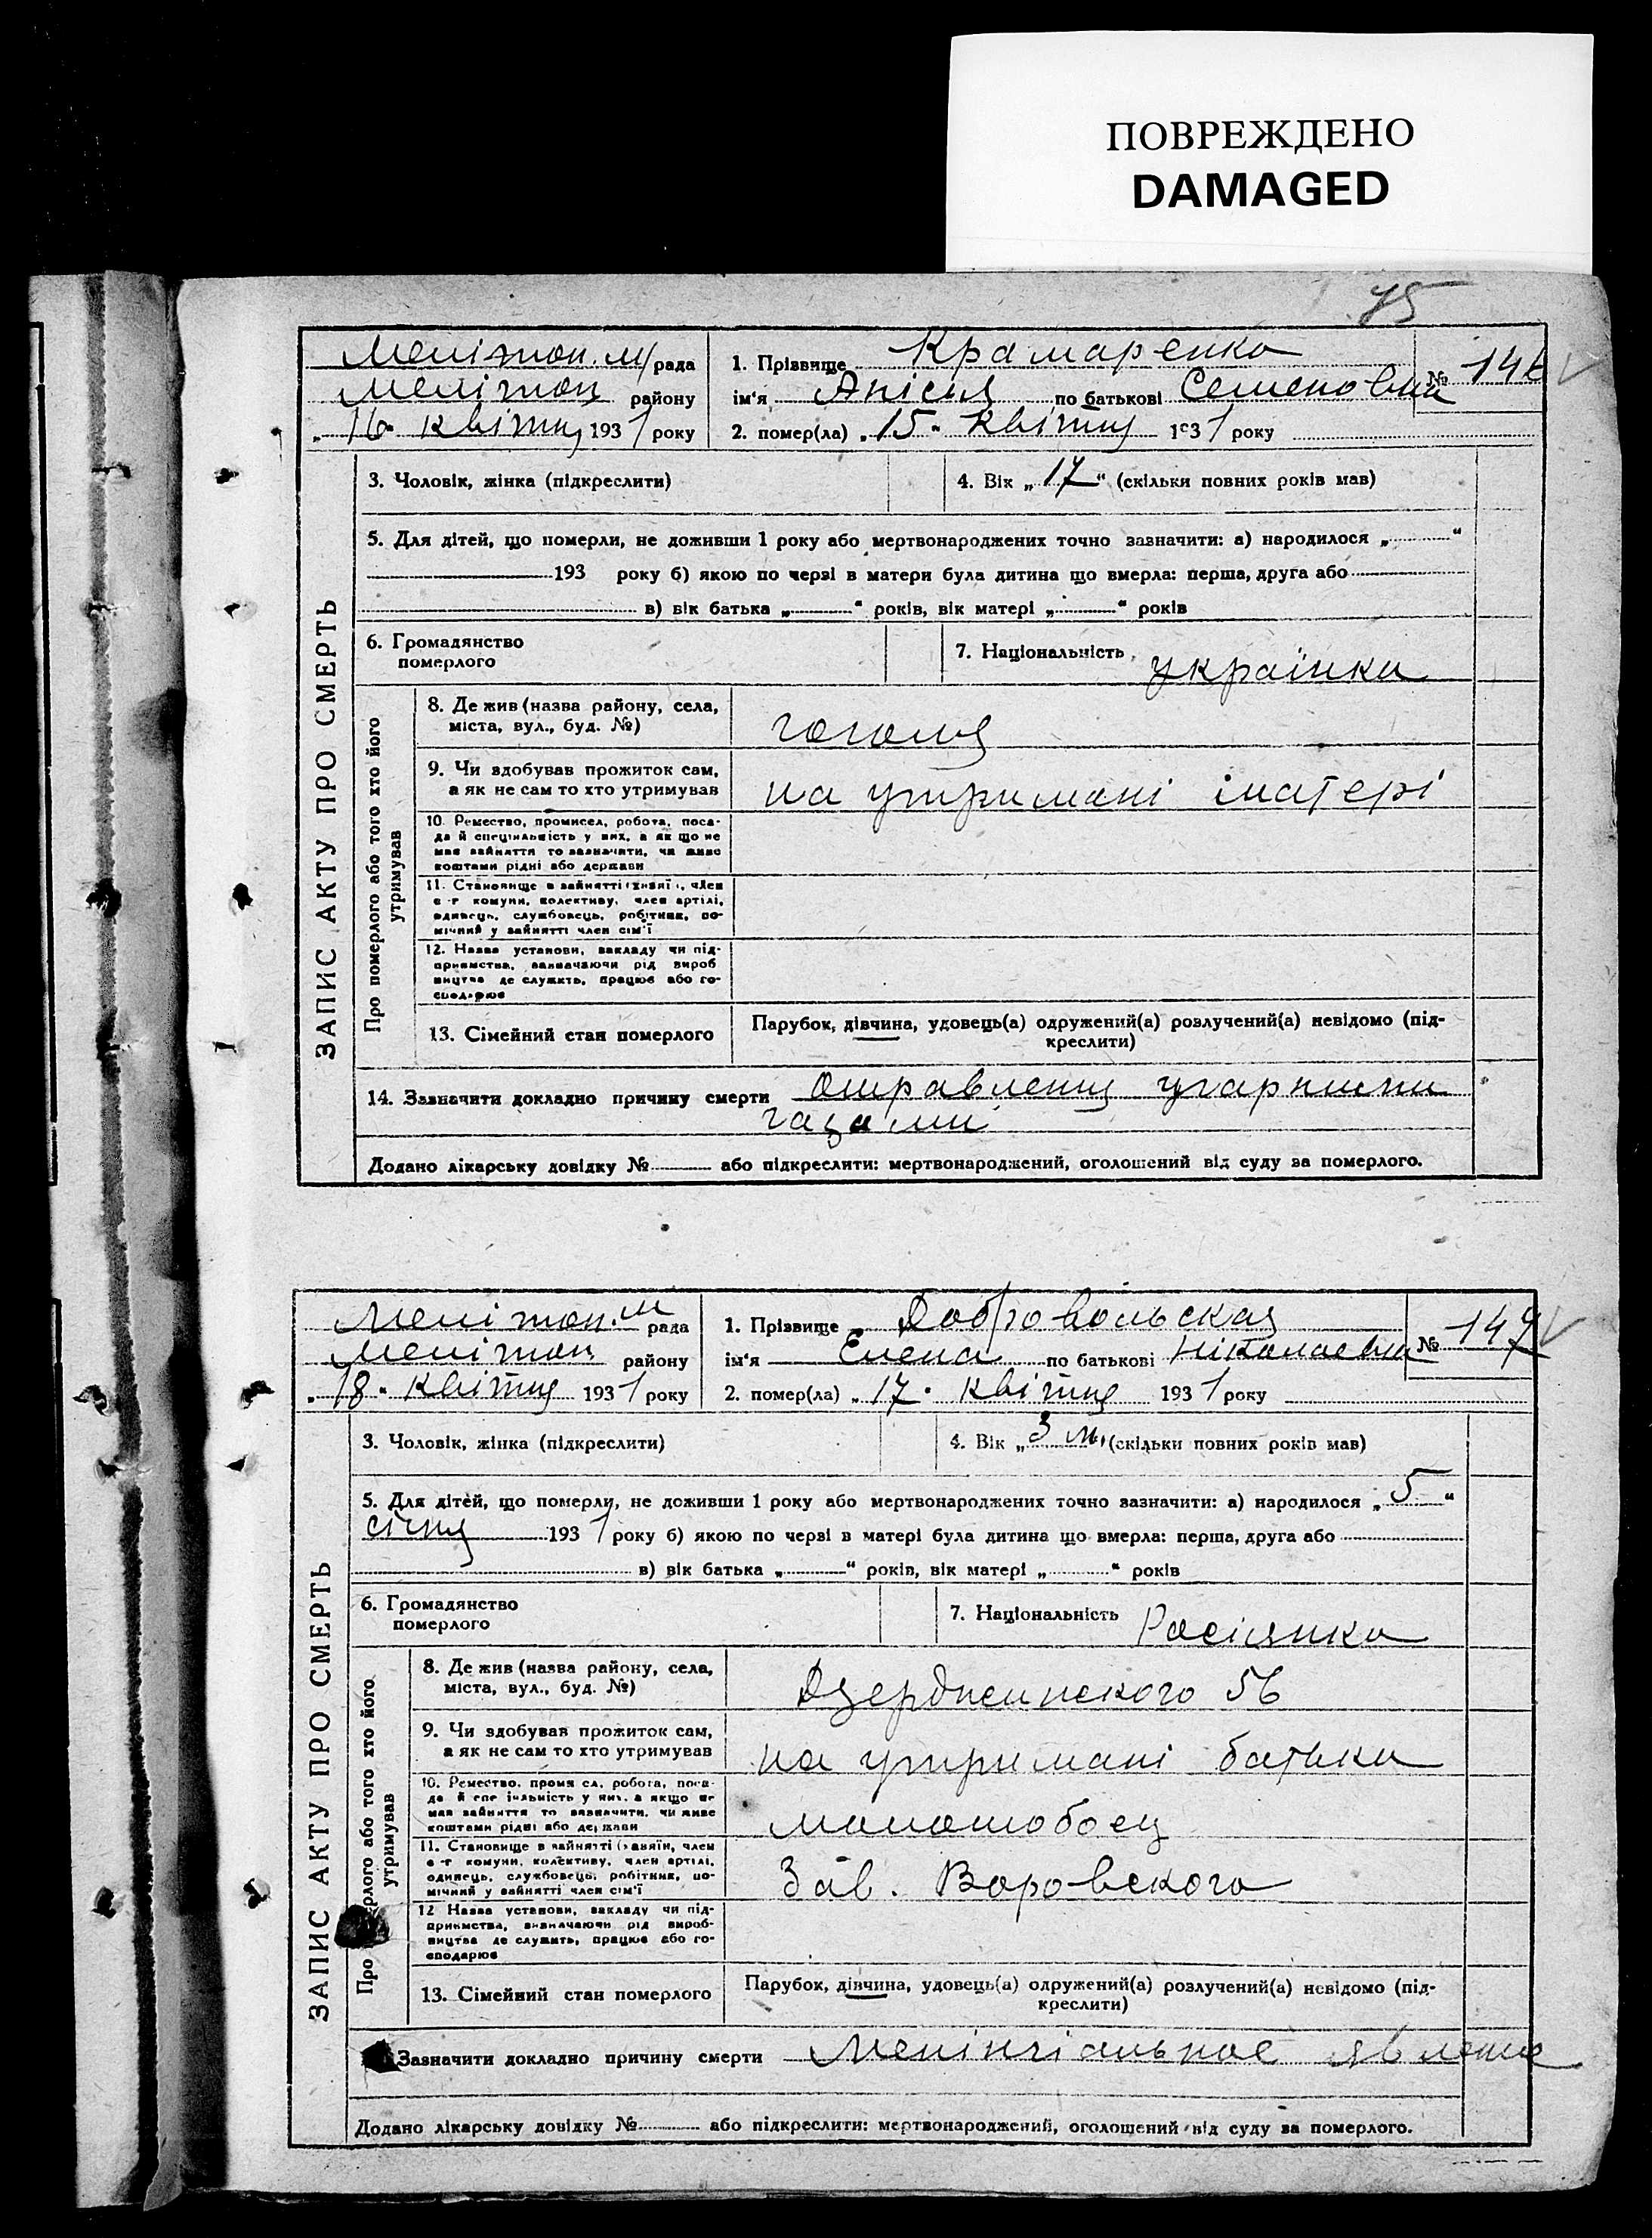 ПОВРЕЖДЕНО
DAMAGED
75
Мелітоп. м/рада 1. Прізвище Крамаренко № 146
Мелітоп району ім'я Анісья по батькові Семеновна
„16" квітня 1931 року 2. помер(ла) „15" квітня 1931 року
ЗАПИС АКТУ ПРО СМЕРТЬ
3. Чоловік, жінка (підкреслити) 4. Вік „17" (скільки повних років мав)
5. Для дітей, що померли, не доживши 1 року або мертвонароджених точно зазначити: а) народилося „ "
193 року б) якою по черзі в матери була дитина що вмерла: перша, друга або
в) вік батька „ " років, вік матері „ " років
6. Громадянство
померлого
7. Національність українка
Про померлого або того хто його
утримував
8. Де жив (назва району, села,
міста, вул., буд. №)
гоголя
9. Чи здобував прожиток сам,
а як не сам то хто утримував
на утримані матері
10. Ремество, промисел, робота, поса-
да й спеціяльність у них, а як що не
мав зайняття то зазначити, чи живе
коштами рідні або держави
11. Становище в зайнятті (хазяїн, член
с-г комуни, колективу, член артілі,
одинець, службовець, робітник, по-
мічний у зайнятті член сім'ї
12. Назва установи, закладу чи під-
приємства, зазначаючи рід вироб
ництва де служить, працює або го-
сподарює
13. Сімейний стан померлого
Парубок, дівчина, удовець(а) одружений(а) розлучений(а) невідомо (під-
креслити)
14. Зазначити докладно причину смерти отравления угарными
газами
Додано лікарську довідку № або підкреслити: мертвонароджений, оголошений від суду за померлого.
Мелітоп. м рада 1. Прізвище Добровольская № 147
Мелітоп району ім'я Елена по батькові Ніколаевна
„18" квітня 1931 року 2. помер(ла) „17" квітня 1931 року
ЗАПИС АКТУ ПРО СМЕРТЬ
3. Чоловік, жінка (підкреслити) 4. Вік „3 м. (скільки повних років мав)
5. Для дітей, що померли, не доживши 1 року або мертвонароджених точно зазначити: а) народилося „5"
січня 1931 року б) якою по черзі в матері була дитина що вмерла: перша, друга або
в) вік батька „ " років, вік матері „ " років
6. Громадянство
померлого
7. Національність Росіянка
Про рлого або того хто його
утримував
8. Де жив (назва району, села,
міста, вул., буд. №)
Дзержинского 56
9. Чи здобував прожиток сам,
а як не сам то хто утримував
на утримані батька
10. Ремество, промисел, робота, поса-
да й спеціяльність у них, а якщо не
мав зайняття то зазначити, чи живе
коштами рідні або держави
молотобоец
11. Становище в зайнятті (хазяїн, член
с-г комуни, колективу, член артілі,
одинець, службовець, робітник, по-
мічний у зайнятті член сім'ї
Зав. Воровского
12 Назва установи, закладу чи під-
приємства, зазначаючи рід вироб-
ництва де служить, працює або го-
сподарює
13. Сімейний стан померлого
Парубок, дівчина, удовець(а) одружений(а) розлучений(а) невідомо (під-
креслити)
Зазначити докладно причину смерти Менінгіальное явление
Додано лікарську довідку № або підкреслити: мертвонароджений, оголошений від суду за померлого.